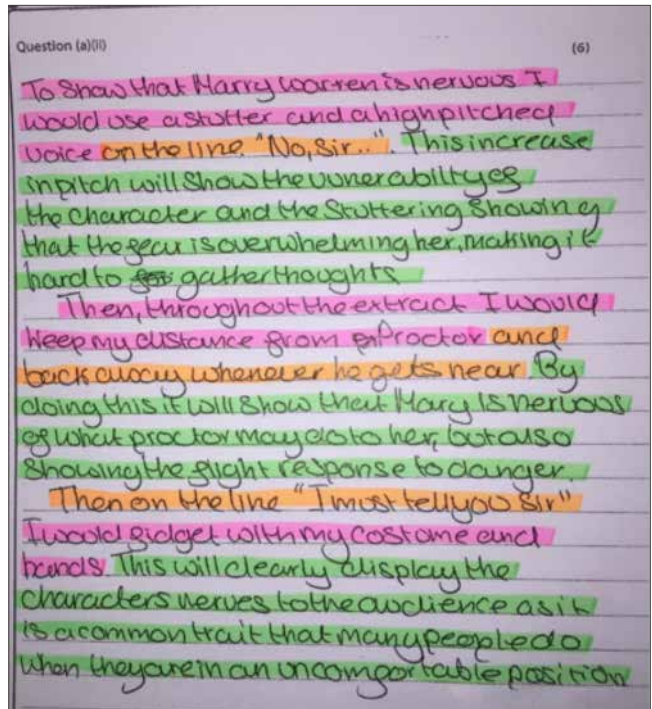 Question (a)(ii)
(6)
To show that Marry warren is nervous I
would use a stutter and a high pitched
voice on the line "No, sir..". This increase
in pitch will show the vunerabiltyof
the character and the stuttering showing
that the fear is overwhelming her, making it
hard to gather thoughts
Then, throughout the extract I would
keep my distance from Proctor and
back away whenever he gets near. By
doing this it will show that Mary is nervous
of what proctor may do to her, but also
showing the flight response to danger.
Then on the line "I must tell you sir"
I would fidget with my costome and
hands. This will clearly display the
characters nerves to the audience as it
is a common trait that many people do
when they are in an uncomfortable position